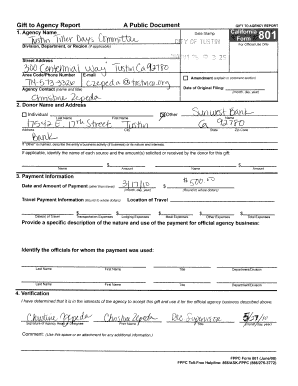 Gift to Agency Report
A Public Document
GIFT TO AGENCY REPORT
1. Agency Name
Tustin Tiller Days Committee
Division, Department, or Region (if applicable)
Date Stamp
CITY OF TUSTIN
California Form 801
For Official Use Only
Street Address
300 Centennial Way Tustin Ca 92780
Area Code/Phone Number
E-mail
714-573-3326
czepeda@tustinca.org
Agency Contact (name and title)
Christine Zepeda
Amendment (explain in comment section)
Date of Original Filing:
(month, day, year)
2. Donor Name and Address
Individual
Other
Sunwest Bank
Last Name
First Name
Name
17542 E. 17th Street Tustin Ca 92780
Address
City
State
Zip Code
Bank
If "Other" is marked, describe the entity's business activity (if business) or its nature and interests.
If applicable, identify the name of each source and the amount(s) solicited or received by the donor for this gift.
$
$
Name
Amount
Name
Amount
3. Payment Information
Date and Amount of Payment (other than travel)
3/17/10
$ 500.00
(month, day, year)
(Round to whole dollars)
Travel Payment Information (Round to whole dollars)
Location of Travel
$
$
$
$
$
Date(s) of Travel
Transportation Expenses
Lodging Expenses
Meal Expenses
Other Expenses
Total Expenses
Provide a specific description of the nature and use of the payment for official agency business:
Identify the officials for whom the payment was used:
Last Name
First Name
Title
Department/Division
Last Name
First Name
Title
Department/Division
4. Verification
I have determined that it is in the interests of the agency to accept this gift and use it for the official agency business described above.
Christine Zepeda
Christine Zepeda
Rec Supervisor
Signature of Agency Head or Designee
Print Name
Title
(month, day, year)
Comment: (Use this space or an attachment for any additional information.)
FPPC Form 801 (June/08)
FPPC Toll-Free Helpline: 866/ASK-FPPC (866/275-3772)